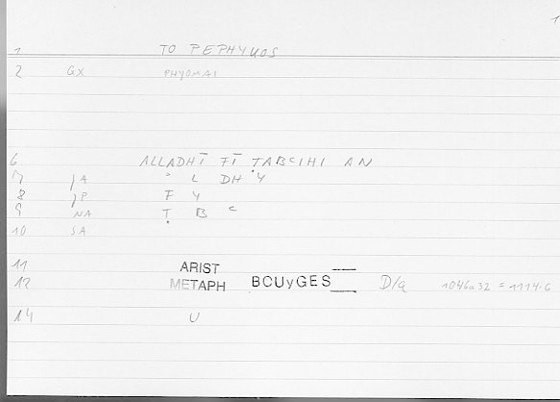 1
1 TO PEPHYKOS
2 GX PHYOMAI
6 ALLADHĪ FĪ ṬABCIHI AN
7 /A " L DH Y
8 /P F Y
9 NA Ṭ B C
10 SA
11 ARIST
12 METAPH BOUyGES D/a 1046a32 = 1114.6
14 U